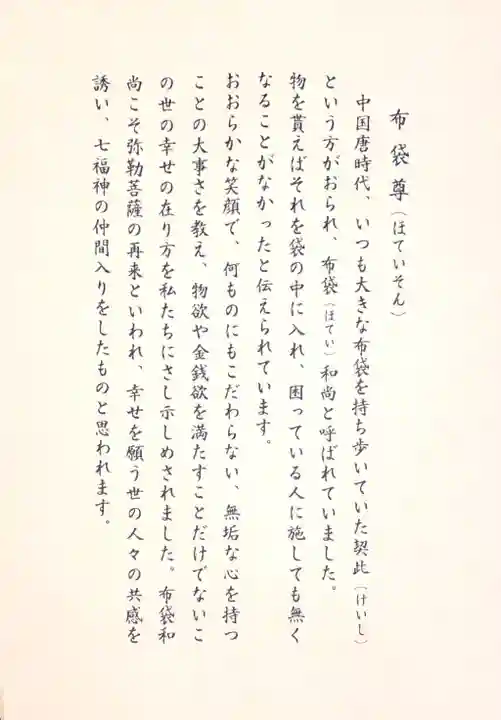 布袋尊(ほていそん)
中国唐時代、いつも大きな布袋を持ち歩いていた契此(けいし)
という方がおられ、布袋(ほてい)和尚と呼ばれていました。
物を貰えばそれを袋の中に入れ、困っている人に施しても無く
なることがなかったと伝えられています。
おおらかな笑顔で、何ものにもこだわらない、無垢な心を持つ
ことの大事さを教え、物欲や金銭欲を満たすことだけでないこ
の世の幸せの在り方を私たちにさし示しめされました。布袋和
尚こそ弥勒菩薩の再来といわれ、幸せを願う世の人々の共感を
誘い、七福神の仲間入りをしたものと思われます。